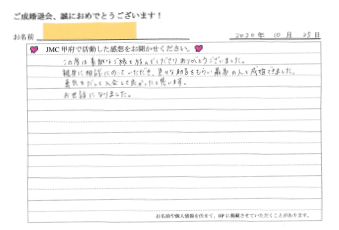 ご成婚退会、誠におめでとうございます!
お名前
2020年 10月 25日
JMC甲府で活動した感想をお聞かせください。
この度は素敵なご縁を結んでくださりありがとうございました。
親身に相談にのっていただき、色々な助言をもらい最高の人と成婚できました。
勇気をだして入会して良かったと思います。
お世話になりました。
お名前や個人情報を伏せて、HPに掲載させていただくことがあります。